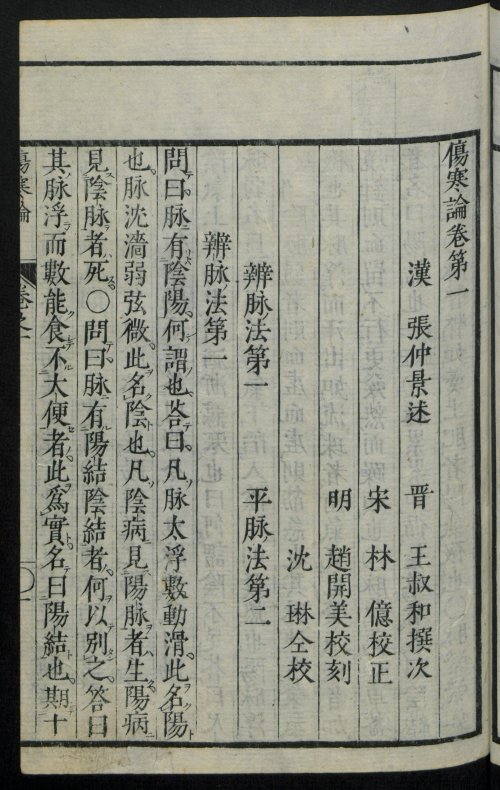 傷寒論卷第一
漢 張仲景述 晋 王叔和撰次
宋 林億校正
明 趙開美校刻
沈琳仝校
辨脉法第一 平脉法第二
辨脉法第一
問曰脉有陰陽何謂也荅曰凡脉大浮數動滑此名陽
也脉沈濇弱弦微此名陰也凡陰病見陽脉者生陽病
見陰脉者死○問曰脉有陽結陰結者何以別之答曰
其脉浮而數能食不大便者此爲實名曰陽結也期十
傷寒論 卷之一